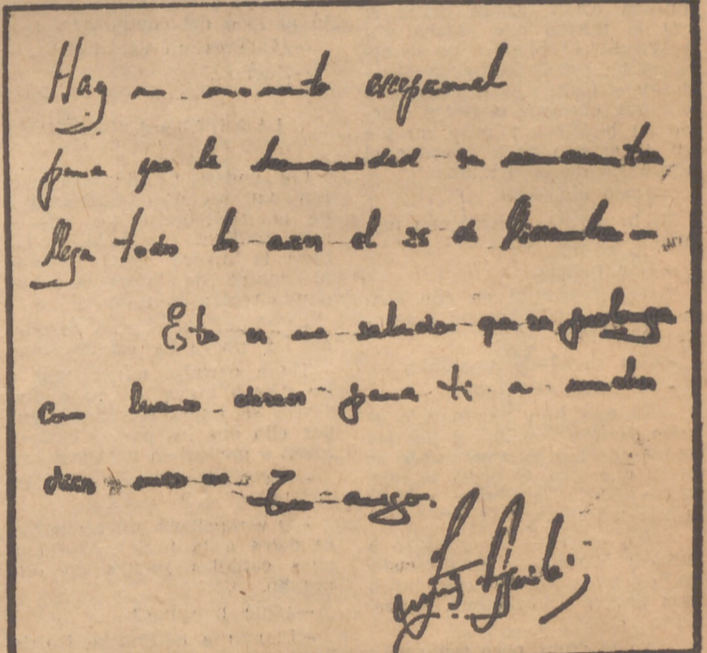 Hay un momento excepcional
para que la humanidad se
llega todos los años el 25 de Diciembre
Esto es un saludo que se prolonga
con buenos deseos para ti a muchos
dias mas Tu amigo.